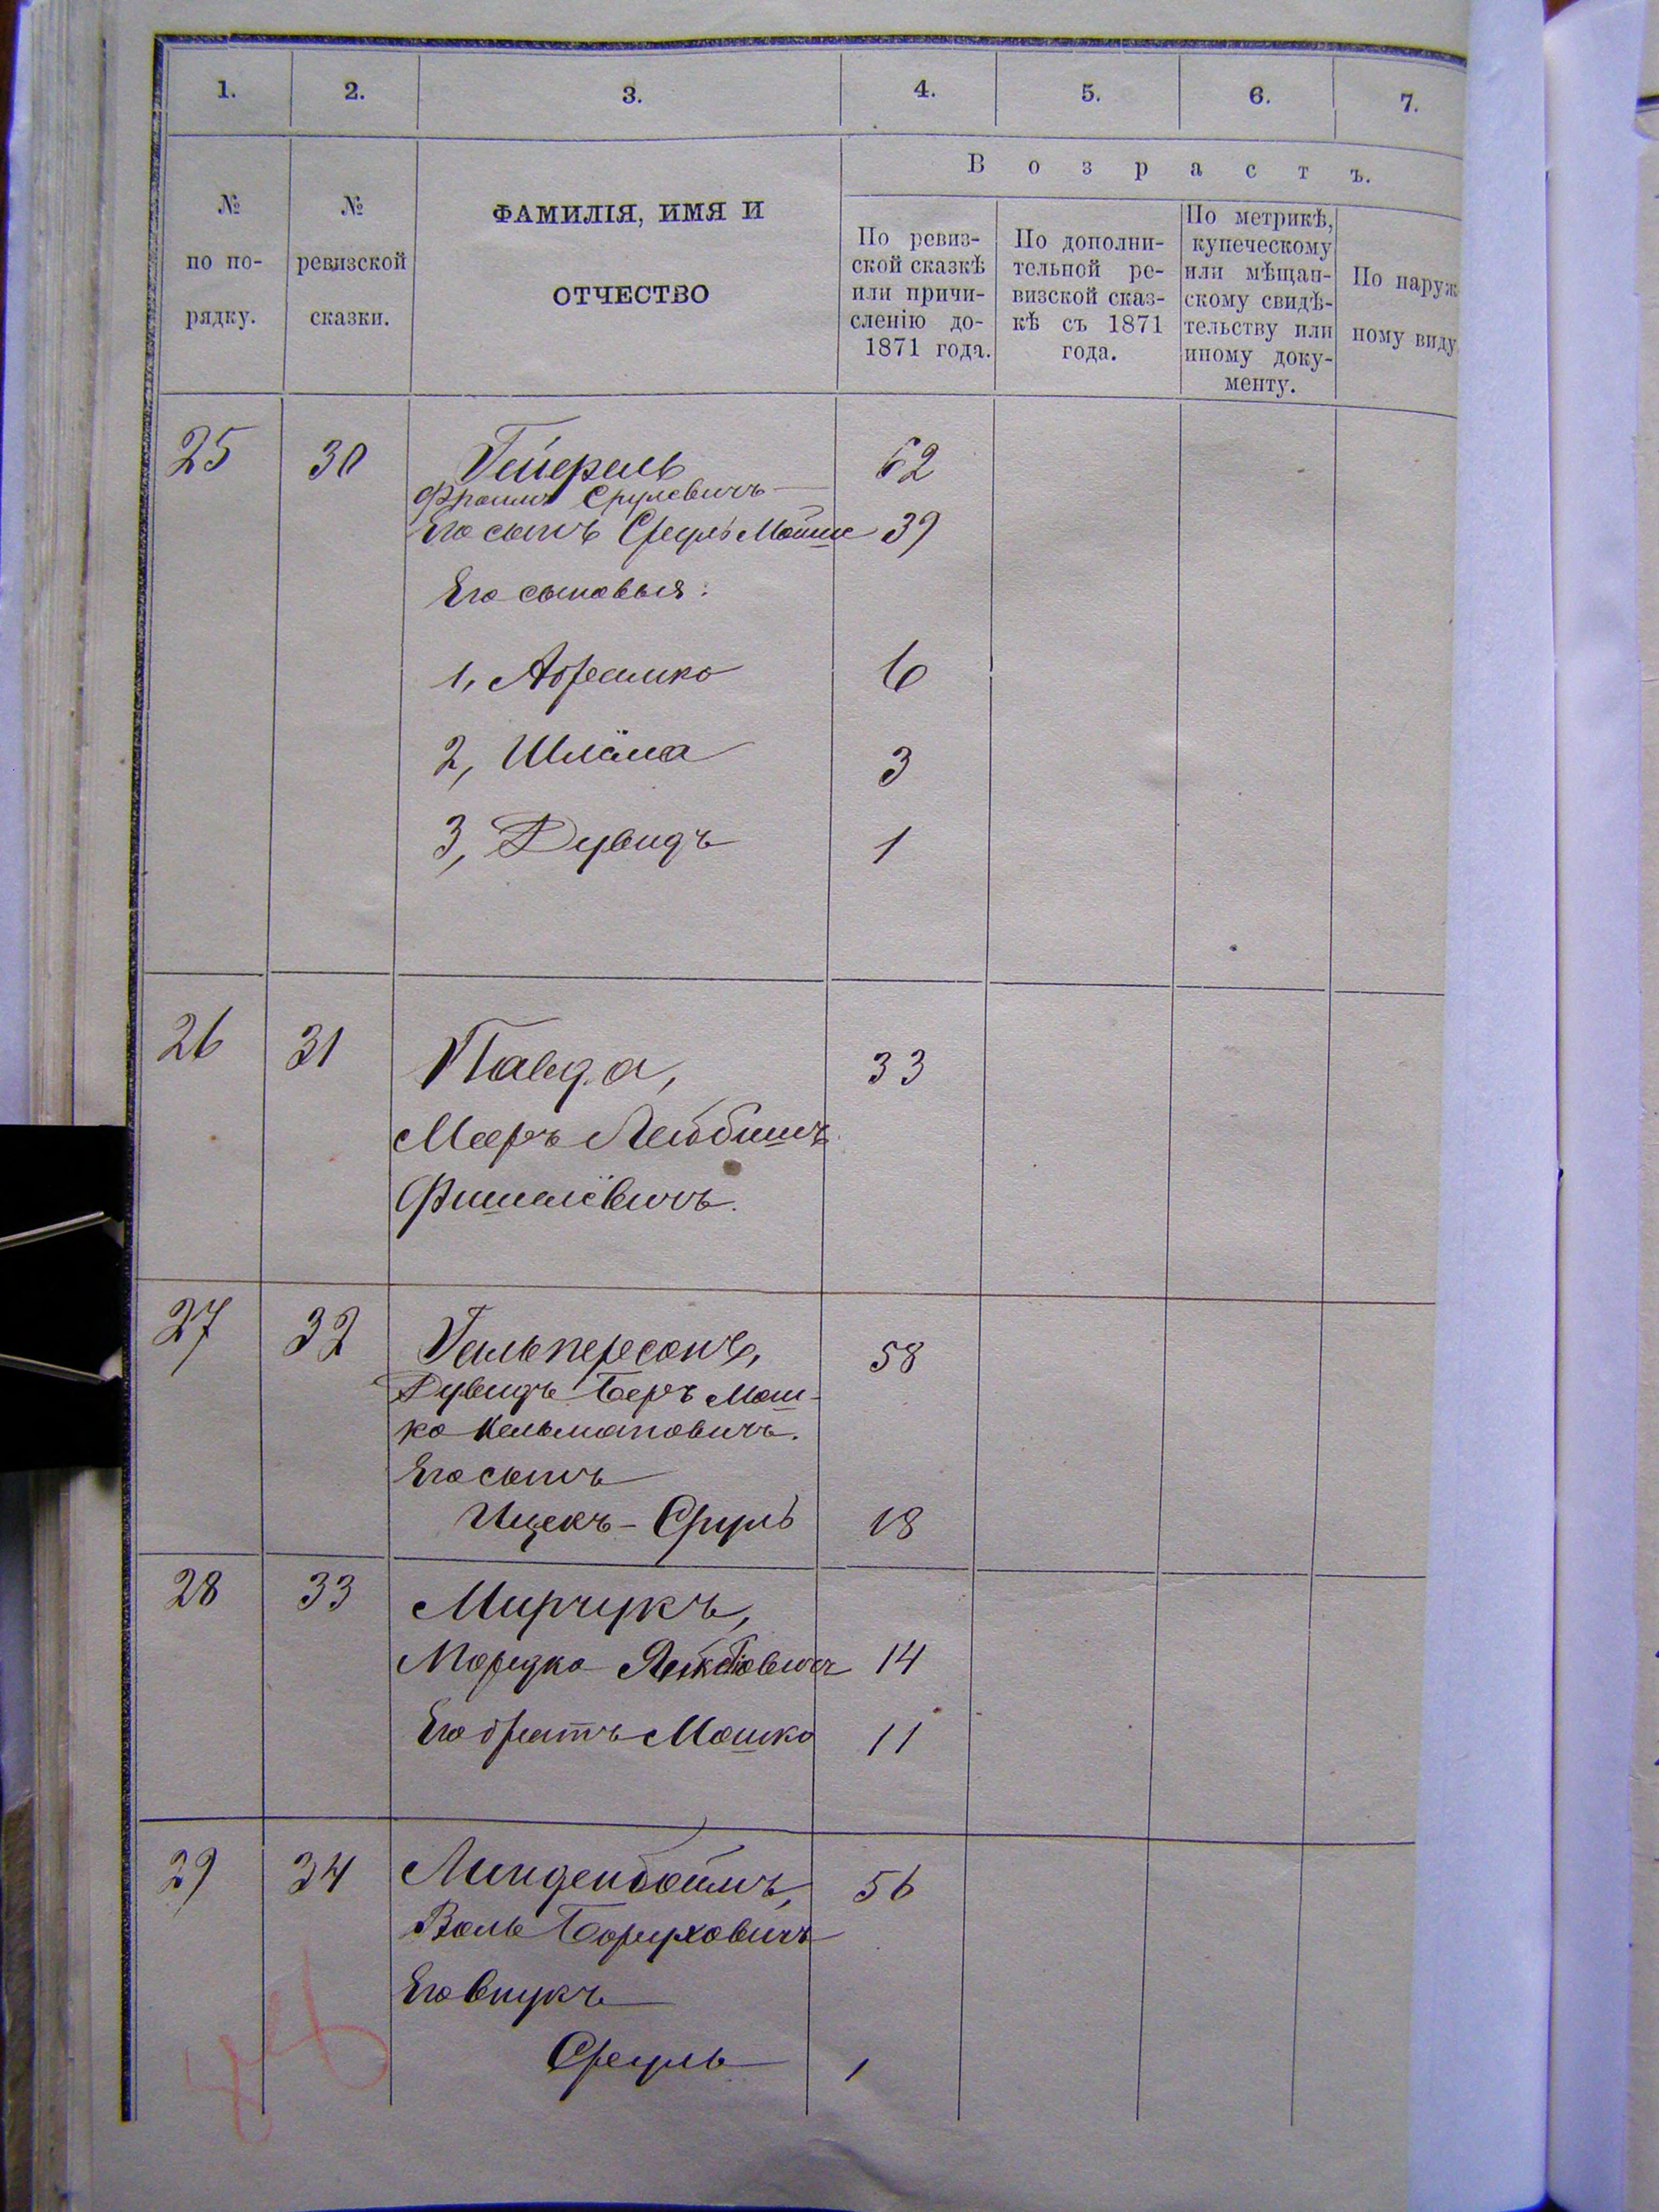 1. 2. 3. 4. 5. 6. 7.
В о з р а с т ъ.
№ по по-рядку.
№ ревизской сказки.
ФАМИЛІЯ, ИМЯ И
ОТЧЕСТВО
По ревиз-
ской сказкѣ
или причи-
сленію до-
1871 года.
По дополни-
тельной ре-
визской сказ-
кѣ съ 1871
года.
По метрикѣ,
купеческому
или мѣщан-
скому свидѣ-
тельству или
иному доку-
менту.
По наруж
ному виду
25 30 62
Фроимъ Срулевичъ
Его сынъ Сруль Мошие 39
Его сыновья:
1, Абрамко 6
2, Шлёма 3
3, Дувидъ 1
26 31 Павда, 33
Мееръ Лейбишъ
Фишелёвичъ.
27 32 Гальперсонъ, 58
Дувидъ Беръ Мош-
ко Кельмановичъ.
Его сынъ
Ицекъ-Сруль 18
28 33 Мирчукъ,
Мордко 14
Его братъ Мошко 11
29 34 Линденбоймъ, 56
Воль Боруховичъ
Его внукъ
Сруль 1